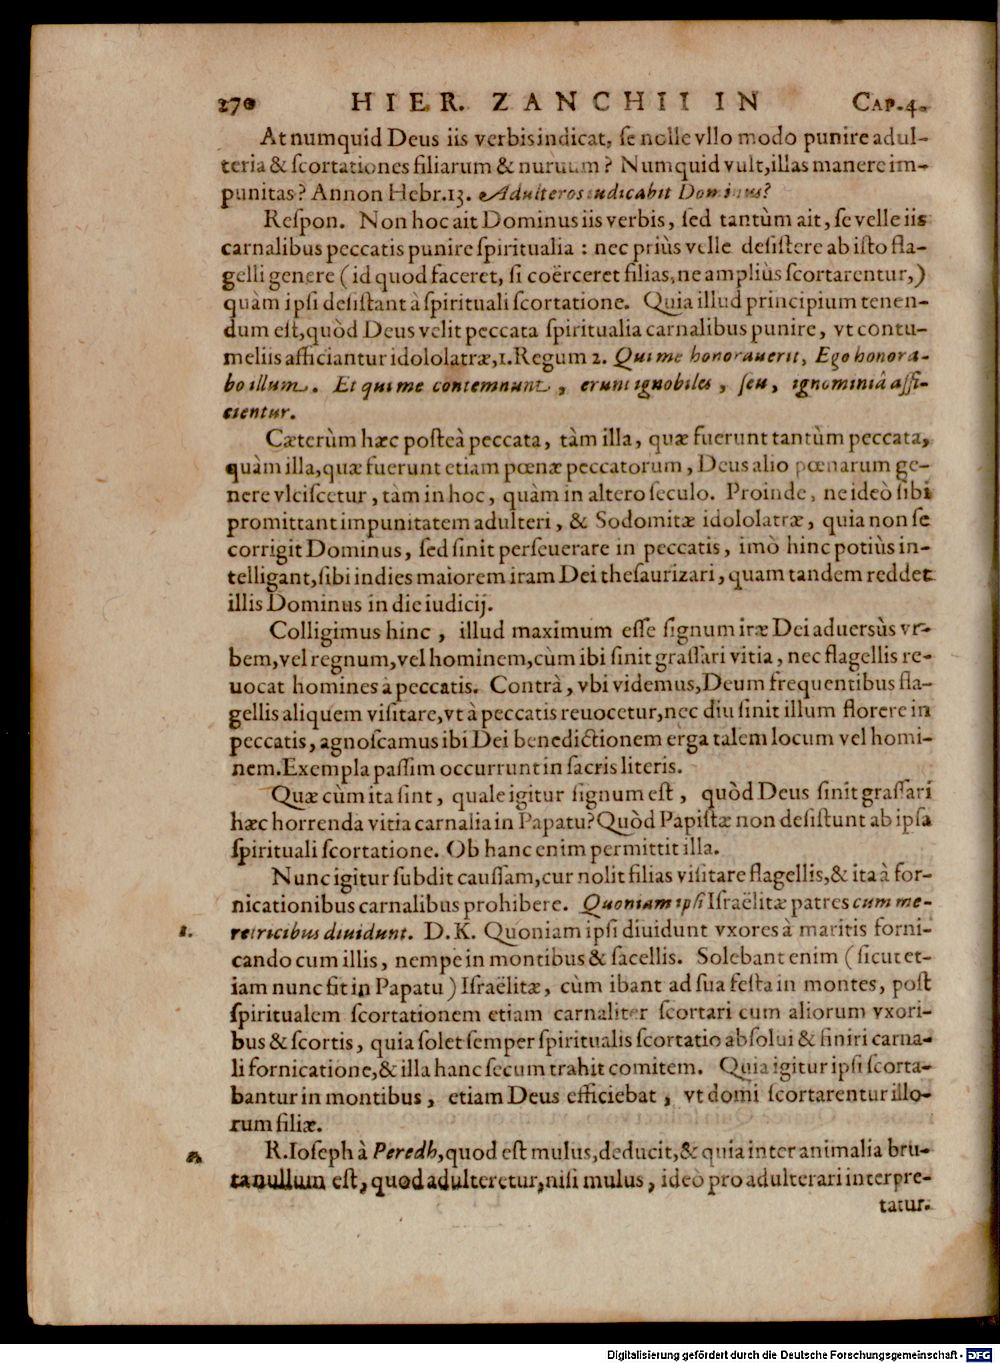 270 HIER. ZANCHII IN CAP.4.
At numquid Deus iis verbis indicat, ſe nolle vllo modo punire adul-
teria & ſcortationes filiarum & nuruum? Numquid vult, illas manere im-
punitas? Annon Hebr.13. Adulteros iudicabit Dominus?
Reſpon. Non hoc ait Dominus iis verbis, ſed tantùm ait, ſe velle iis
carnalibus peccatis punire ſpiritualia: nec priùs velle deſiſtere ab iſto fla-
gelli genere (id quod faceret, ſi coërceret filias, ne ampliùs ſcortarentur,)
quàm ipſi deſiſtant à ſpirituali ſcortatione. Quia illud principium tenen-
dum eſt, quòd Deus velit peccata ſpiritualia carnalibus punire, vt contu-
meliis afficiantur idololatræ, 1.Regum 2. Qui me honorauerit, Ego honora-
bo illum. Et qui me contemnunt, erunt ignobiles, ſeu, ignominiâ affi-
cientur.
Cæterùm hæc poſteà peccata, tàm illa, quæ fuerunt tantùm peccata,
quàm illa, quæ fuerunt etiam pœnæ peccatorum, Deus alio pœnarum ge-
nere vlciſcetur, tàm in hoc, quàm in altero ſeculo. Proinde, ne ideò ſibi
promittant impunitatem adulteri, & Sodomitæ idololatræ, quia non ſe
corrigit Dominus, ſed ſinit perſeuerare in peccatis, imò hinc potiùs in-
telligant, ſibi indies maiorem iram Dei theſaurizari, quam tandem reddet
illis Dominus in die iudicij.
Colligimus hinc, illud maximum eſſe ſignum iræ Dei aduersùs vr-
bem, vel regnum, vel hominem, cùm ibi ſinit graſſari vitia, nec flagellis re-
uocat homines à peccatis. Contrà, vbi videmus, Deum frequentibus fla-
gellis aliquem viſitare, vt à peccatis reuocetur, nec diu ſinit illum florere in
peccatis, agnoſcamus ibi Dei benedictionem erga talem locum vel homi-
nem. Exempla paſſim occurrunt in ſacris literis.
Quæ cùm ita ſint, quale igitur ſignum eſt, quòd Deus ſinit graſſari
hæc horrenda vitia carnalia in Papatu? Quòd Papiſtæ non deſiſtunt ab ipſa
ſpirituali ſcortatione. Ob hanc enim permittit illa.
Nunc igitur ſubdit cauſſam, cur nolit filias viſitare flagellis, & ita à for-
nicationibus carnalibus prohibere. Quoniam ipſi Iſraëlitæ patres cum me-
1. retricibus diuidunt. D.K. Quoniam ipſi diuidunt vxores à maritis forni-
cando cum illis, nempe in montibus & ſacellis. Solebant enim (ſicut et-
iam nunc fit in Papatu) Iſraëlitæ, cùm ibant ad ſua feſta in montes, poſt
ſpiritualem ſcortationem etiam carnaliter ſcortari cum aliorum vxori-
bus & ſcortis, quia ſolet ſemper ſpiritualis ſcortatio abſolui & finiri carna-
li fornicatione, & illa hanc ſecum trahit comitem. Quia igitur ipſi ſcorta-
bantur in montibus, etiam Deus efficiebat, vt domi ſcortarentur illo-
rum filiæ.
R. Ioſeph à Peredh, quod eſt mulus, deducit, & quia inter animalia bru-
ta nullum eſt, quod adulteretur, niſi mulus, ideò pro adulterari interpre-
tatur.
Digitalisierung gefördert durch die Deutsche Forschungsgemeinschaft - DFG